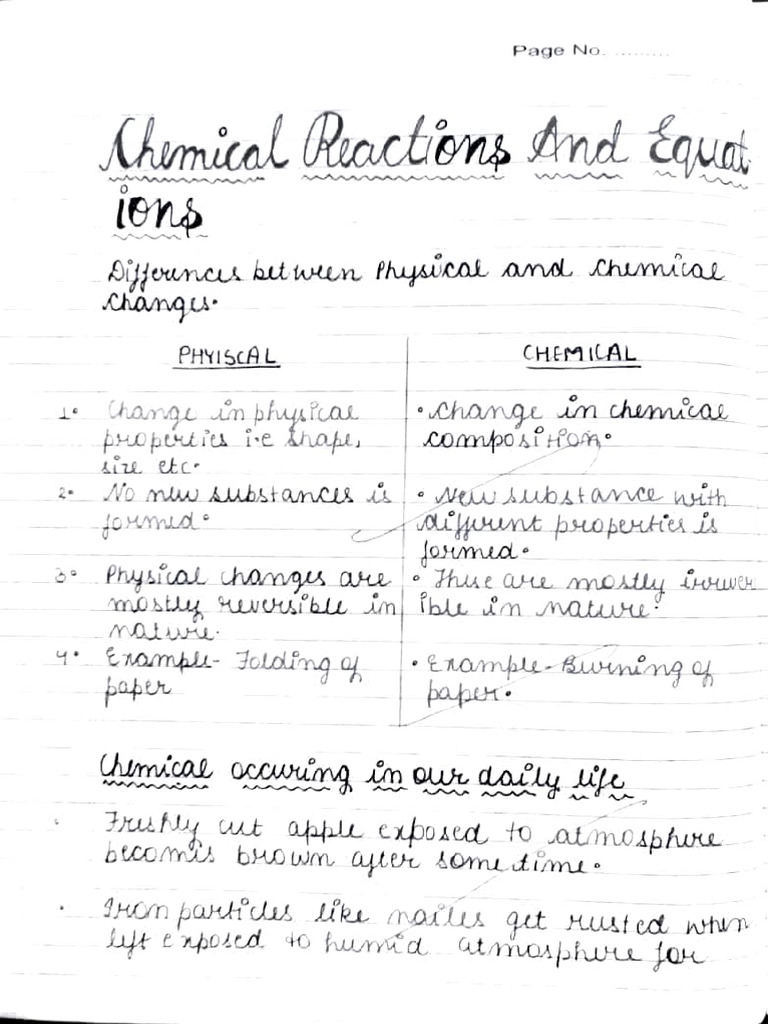 Page No. ..........
Chemical Reactions And Equat
ions
Differences between Physical and Chemical
Changes.
PHYISCAL
CHEMICAL
1. Change in physical
properties i.e shape,
size etc.
• Change in chemical
composition.
2. No new substances is
formed.
• New substance with
different properties is
formed.
3. Physical changes are
mostly reversible in
nature.
• These are mostly irrever
ible in nature.
4. Example- Folding of
paper
• Example- Burning of
paper.
Chemical occuring in our daily life
• Freshly cut apple exposed to atmosphere
becomes brown after some time.
• Iron particles like nailes get rusted when
left exposed to humid atmosphere for